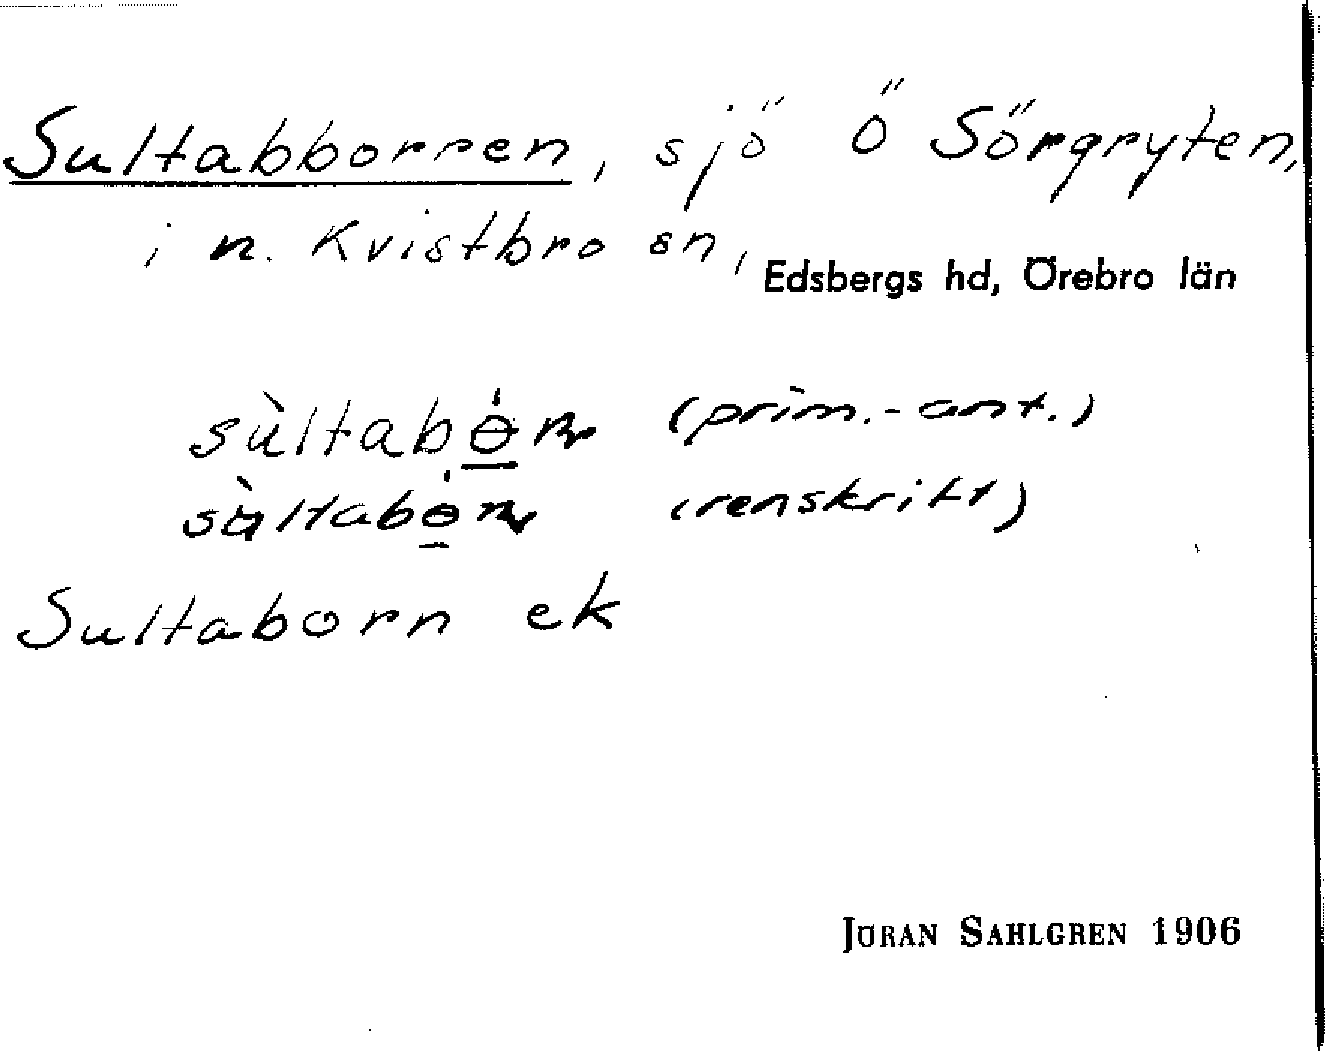 Sultabborren, sjö Ö Sörgryten,
i n. Kvistbro sn, Edsbergs hd, Örebro län
(prim.-ant.)
(renskrift)
Sultaborn ek
JÖRAN SAHLGREN 1906